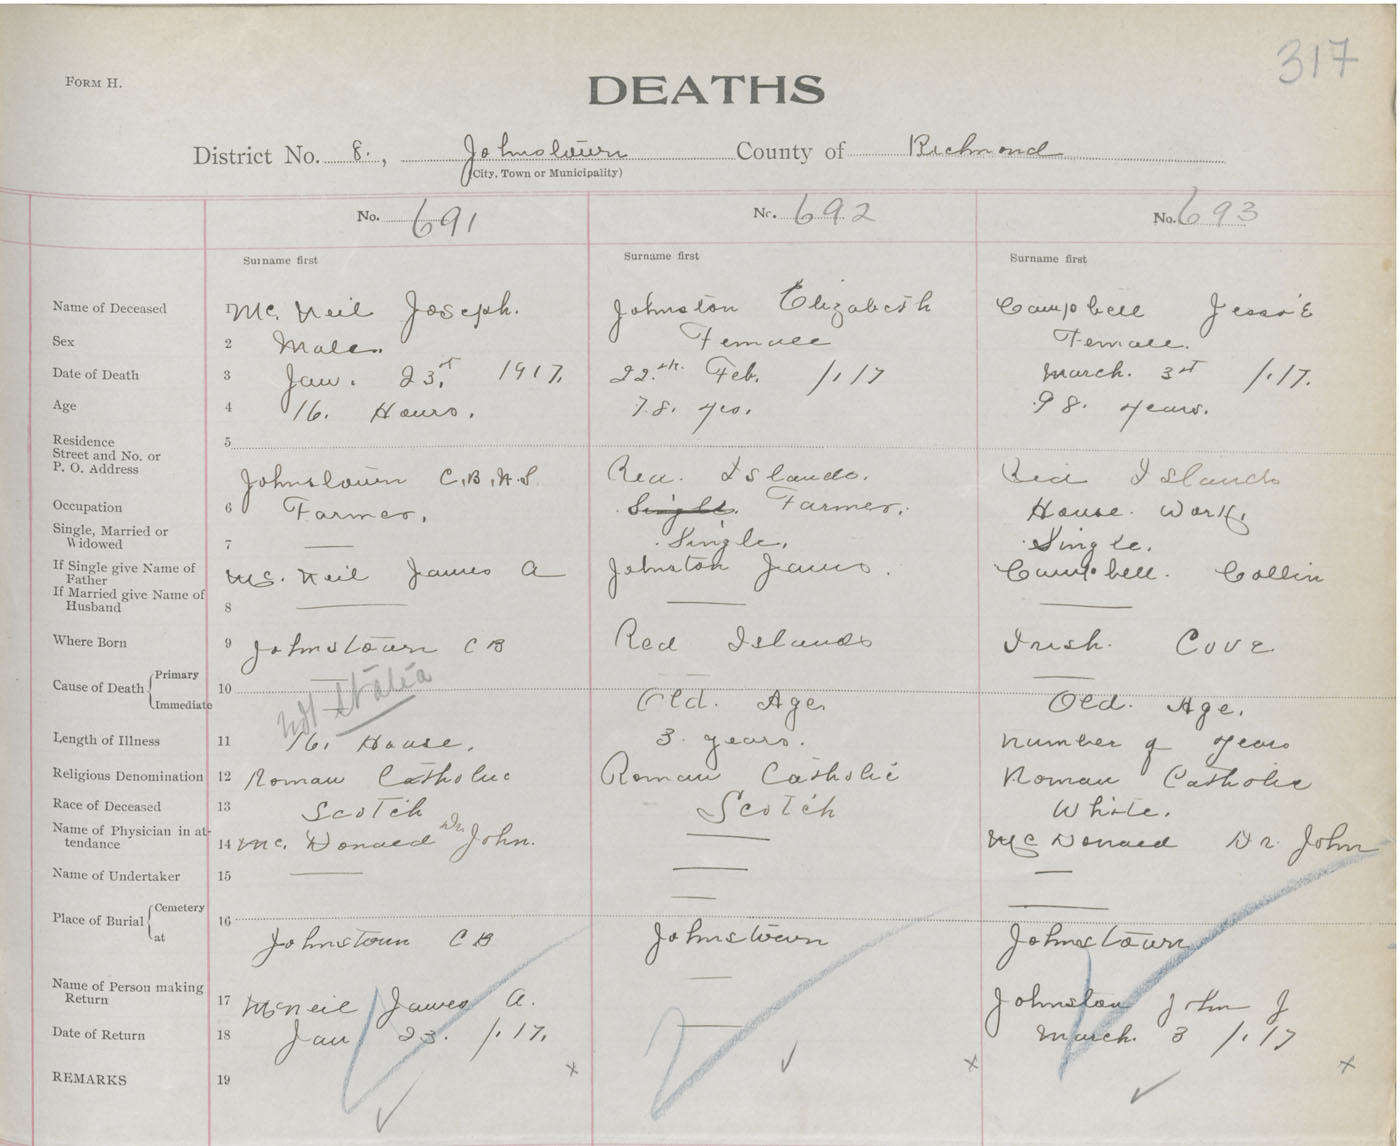 317
FORM H.
DEATHS
District No. 8., Johnstown County of Richmond
(City, Town or Municipality)
No. 691 No. 692 No. 693
Surname first Surname first Surname first
Name of Deceased 1 Mc. Neil Joseph. Johnston Elizabeth Campbell Jessie
Sex 2 Male. Female Female.
Date of Death 3 Jan. 23.rd 1917. 22.th. Feb. /.17 March. 3rd /.17.
Age 4 16. Hours. 78. yrs. 98. years.
Residence 5
Street and No. or
P. O. Address
Johnstown C.B, N.S. Red. Islands. Red Islands
Occupation 6 Farmer. Single. Farmer. House. Work.
Single, Married or
Widowed 7 — Single. Single.
If Single give Name of
Father Mc. Neil James A Johnston James. Campbell. Collin
If Married give Name of
Husband 8 — — —
Where Born 9 Johnstown C B Red Islands Irish. Cove
Cause of Death Primary 10 —
Immediate not stated Old. Age. Old. Age.
Length of Illness 11 16. House. 3 years. Number of years
Religious Denomination 12 Roman Catholic Roman Catholic Roman Catholic
Race of Deceased 13 Scotch Scotch White.
Name of Physician in at-
tendance 14 Mc. Donald Dr. John. — Mc Donald Dr. John
Name of Undertaker 15 — — —
Place of Burial Cemetery 16 — —
at Johnstown C B Johnstown Johnstown
Name of Person making
Return 17 McNeil James A. — Johnston John J
Date of Return 18 Jan 23. /.17. — March. 3 /.17
REMARKS 19 x x x